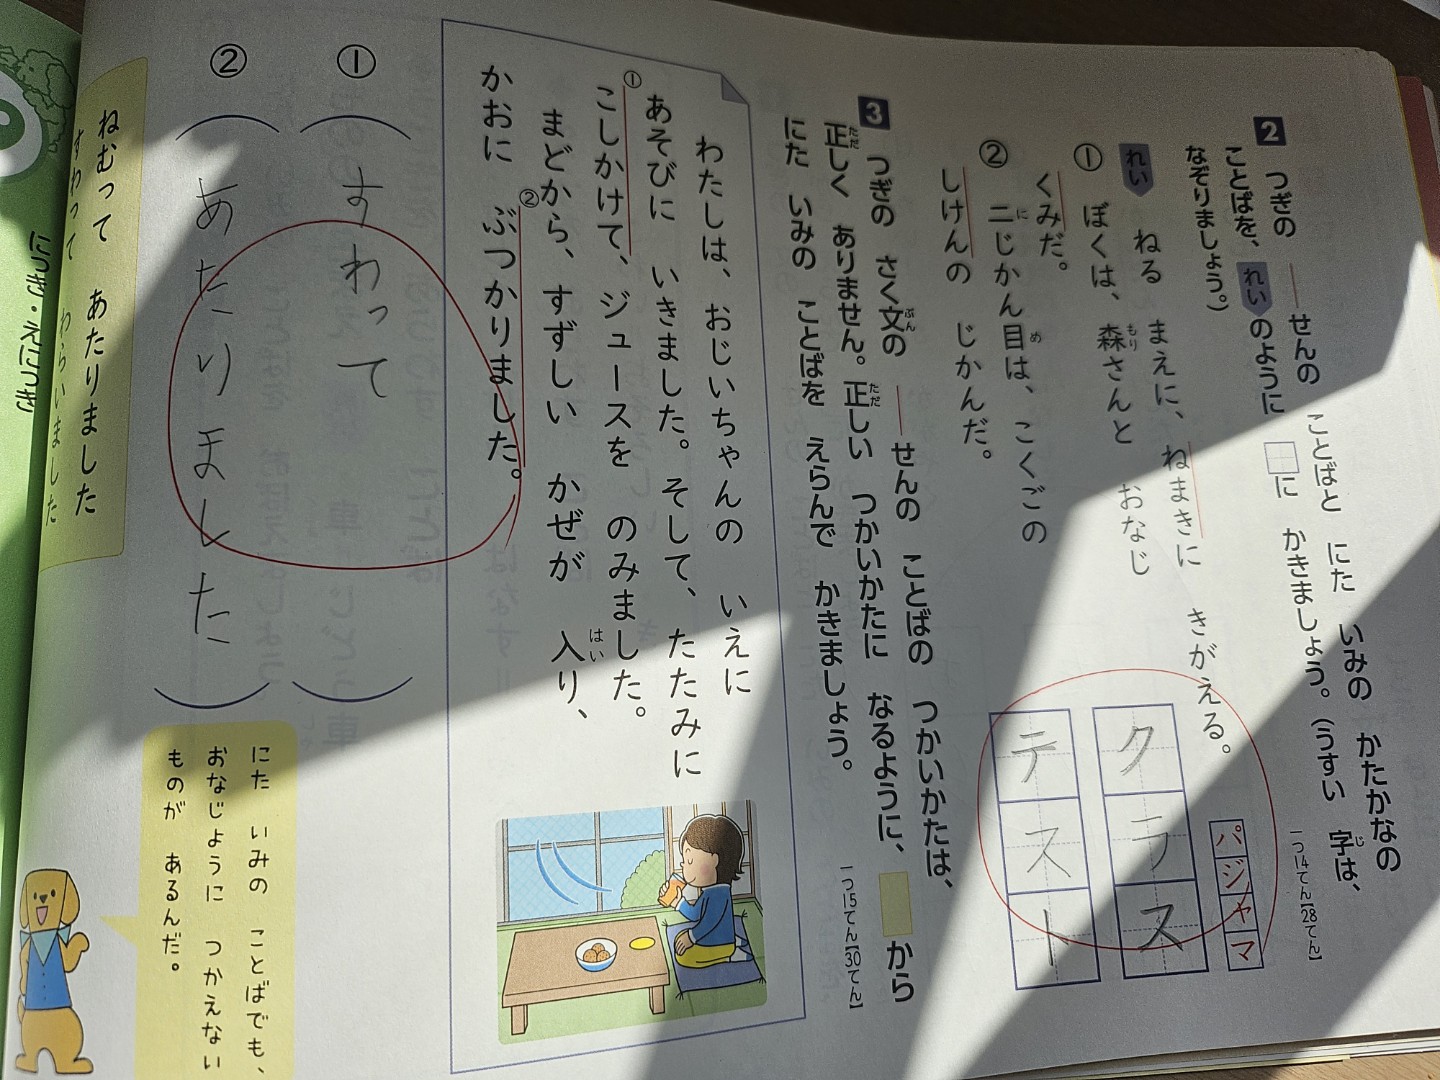 2 つぎの ―せんの ことばと にた いみの かたかなの
ことばを、れいのように □に かきましょう。(うすい 字は、
なぞりましょう。)
じ
一つ14てん【28てん】
れい ねる まえに、ねまきに きがえる。
パジャマ
① ぼくは、森さんと おなじ
もり
くみだ。
クラス
② 二じかん目は、こくごの
に
め
しけんの じかんだ。
テスト
3 つぎの さく文の ―せんの ことばの つかいかたは、
ぶん
正しく ありません。正しい つかいかたに なるように、 から
ただ
ただ
にた いみの ことばを えらんで かきましょう。
一つ15てん【30てん】
わたしは、おじいちゃんの いえに
あそびに いきました。そして、たたみに
①こしかけて、ジュースを のみました。
まどから、すずしい かぜが 入り、
はい
かおに ②ぶつかりました。
① (すわって)
② (あたりました)
ねむって あたりました
すわって わらいました
にた いみの ことばでも、
おなじように つかえない
ものが あるんだ。
にっき・えにっき